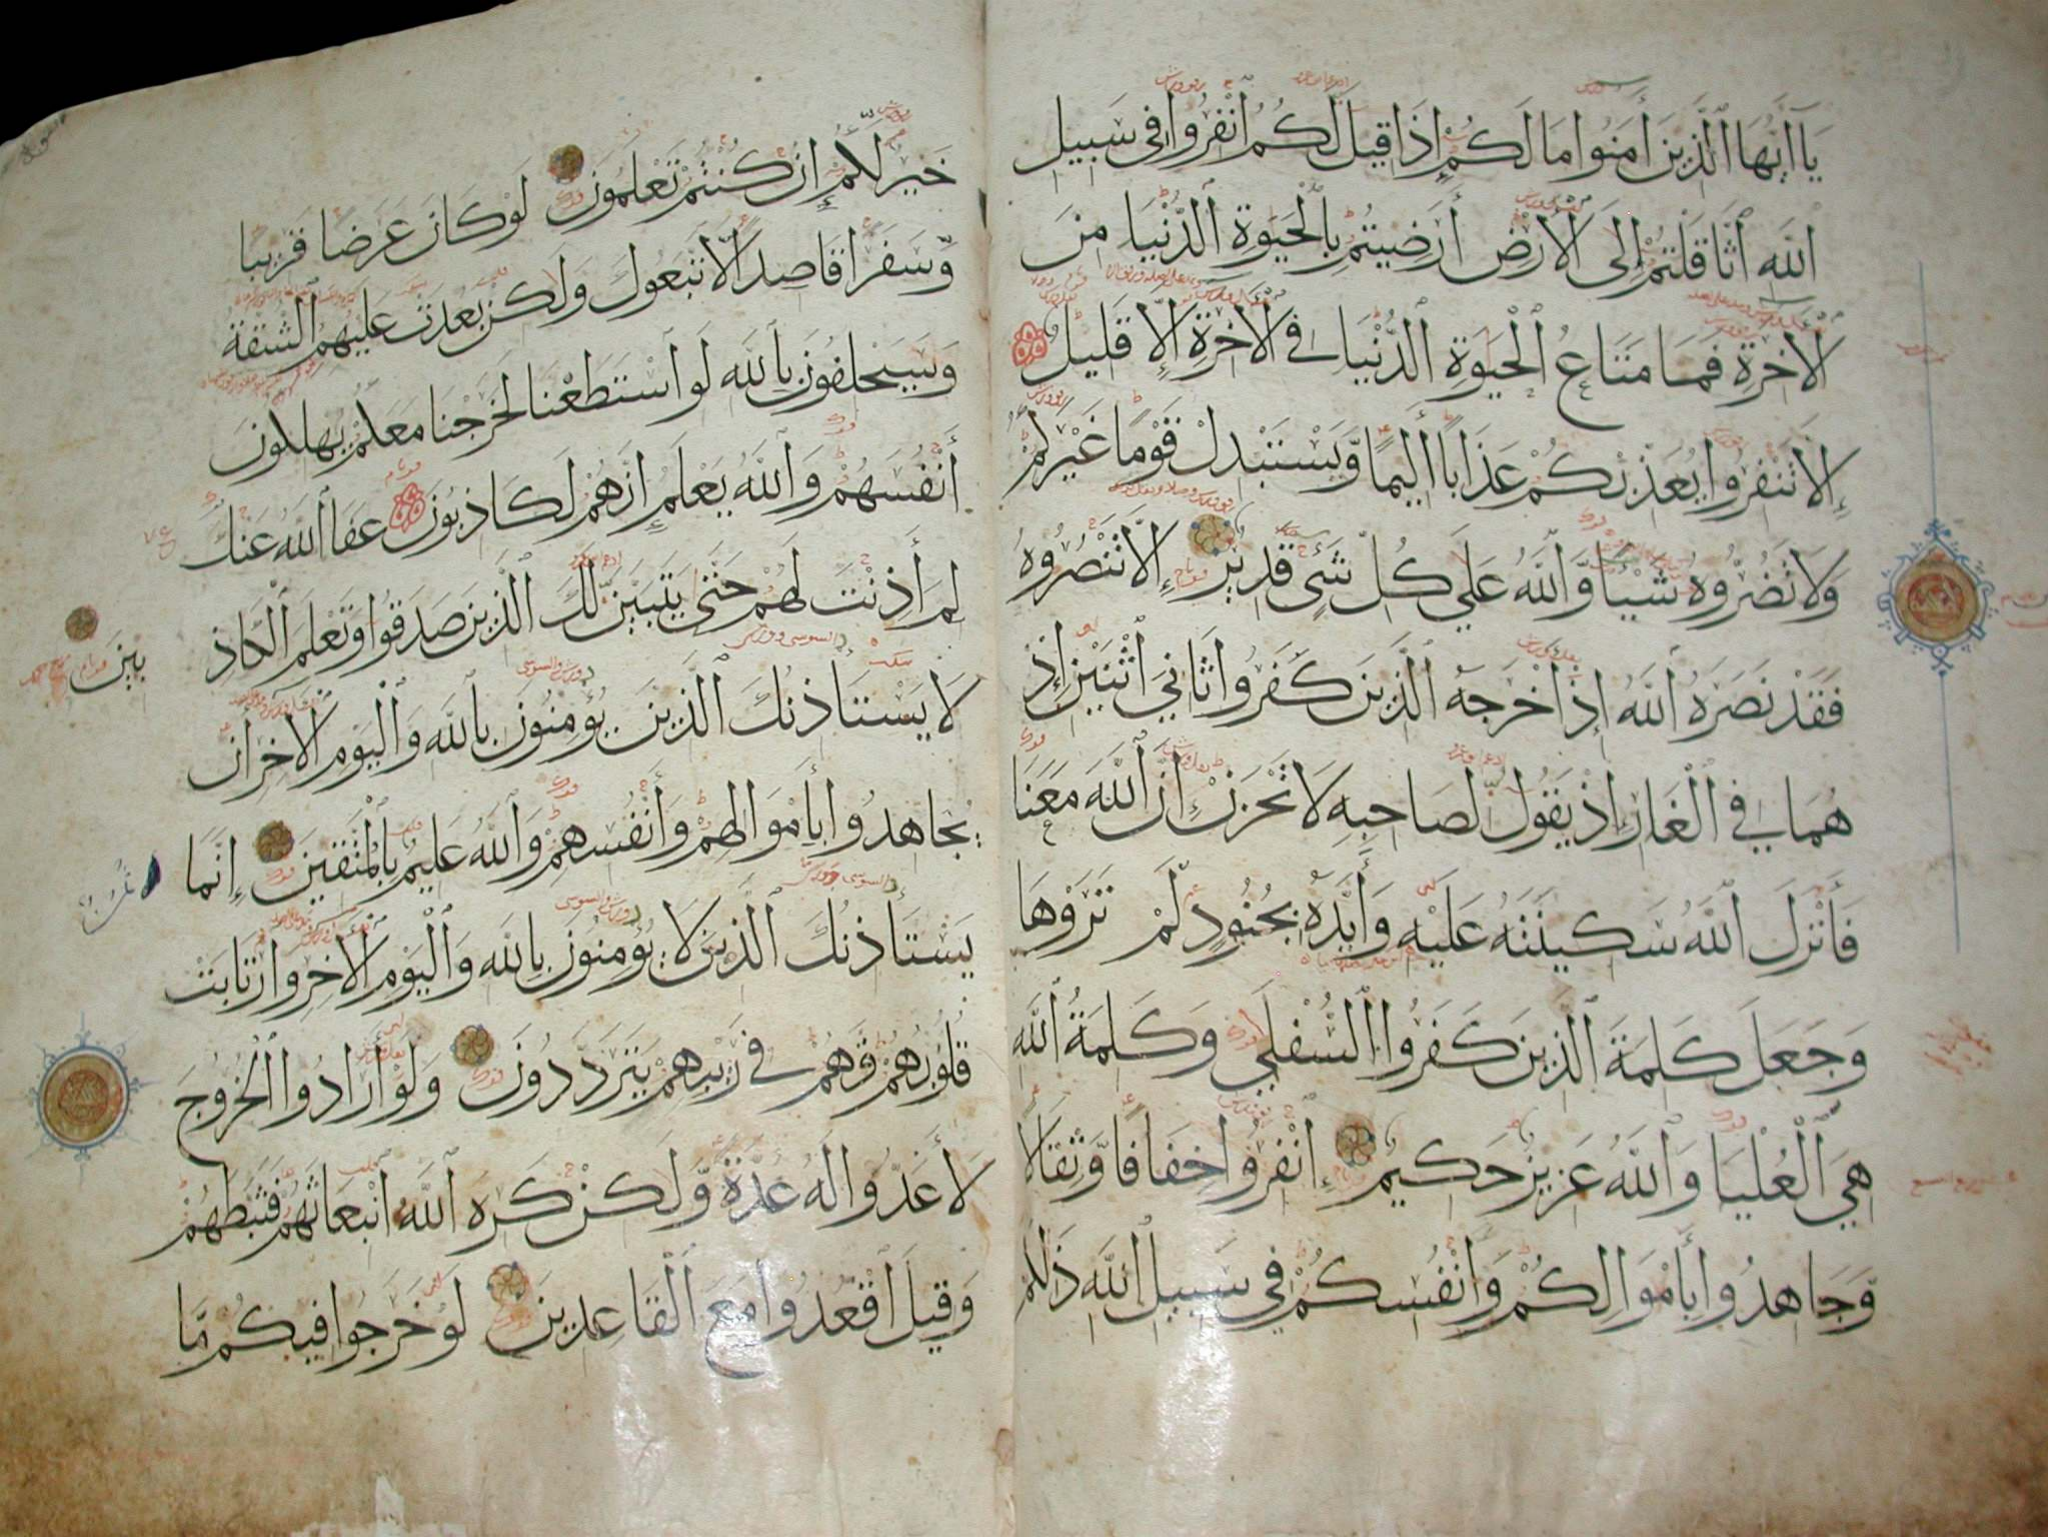 يَا أَيُّهَا الَّذِينَ آمَنُوا مَا لَكُمْ إِذَا قِيلَ لَكُمُ انْفِرُوا فِي سَبِيلِ
اللَّهِ اثَّاقَلْتُمْ إِلَى الْأَرْضِ أَرَضِيتُمْ بِالْحَيَوةِ الدُّنْيَا مِنَ
الْآخِرَةِ فَمَا مَتَاعُ الْحَيَوةِ الدُّنْيَا فِي الْآخِرَةِ إِلَّا قَلِيلٌ
إِلَّا تَنْفِرُوا يُعَذِّبْكُمْ عَذَابًا أَلِيمًا وَّيَسْتَبْدِلْ قَوْمًا غَيْرَكُمْ
وَلَا تَضُرُّوهُ شَيْئًا وَّاللَّهُ عَلَى كُلِّ شَيْءٍ قَدِيرٌ إِلَّا تَنْصُرُوهُ
فَقَدْ نَصَرَهُ اللَّهُ إِذْ أَخْرَجَهُ الَّذِينَ كَفَرُوا ثَانِيَ اثْنَيْنِ إِذْ
هُمَا فِي الْغَارِ إِذْ يَقُولُ لِصَاحِبِهِ لَا تَحْزَنْ إِنَّ اللَّهَ مَعَنَا
فَأَنْزَلَ اللَّهُ سَكِينَتَهُ عَلَيْهِ وَأَيَّدَهُ بِجُنُودٍ لَّمْ تَرَوْهَا
وَجَعَلَ كَلِمَةَ الَّذِينَ كَفَرُوا السُّفْلَى وَكَلِمَةُ اللَّهِ
هِيَ الْعُلْيَا وَاللَّهُ عَزِيزٌ حَكِيمٌ انْفِرُوا خِفَافًا وَّثِقَالًا
وَّجَاهِدُوا بِأَمْوَالِكُمْ وَأَنْفُسِكُمْ فِي سَبِيلِ اللَّهِ ذَلِكُمْ
خَيْرٌ لَّكُمْ إِنْ كُنْتُمْ تَعْلَمُونَ لَوْ كَانَ عَرَضًا قَرِيبًا
وَّسَفَرًا قَاصِدًا لَّاتَّبَعُوكَ وَلَكِنْ بَعُدَتْ عَلَيْهِمُ الشُّقَّةُ
وَسَيَحْلِفُونَ بِاللَّهِ لَوِ اسْتَطَعْنَا لَخَرَجْنَا مَعَكُمْ يُهْلِكُونَ
أَنْفُسَهُمْ وَاللَّهُ يَعْلَمُ إِنَّهُمْ لَكَاذِبُونَ عَفَا اللَّهُ عَنْكَ
لِمَ أَذِنْتَ لَهُمْ حَتَّى يَتَبَيَّنَ لَكَ الَّذِينَ صَدَقُوا وَتَعْلَمَ الْكَاذِ
بِينَ
لَا يَسْتَأْذِنُكَ الَّذِينَ يُؤْمِنُونَ بِاللَّهِ وَالْيَوْمِ الْآخِرِ أَنْ
يُّجَاهِدُوا بِأَمْوَالِهِمْ وَأَنْفُسِهِمْ وَاللَّهُ عَلِيمٌ بِالْمُتَّقِينَ إِنَّمَا
يَسْتَأْذِنُكَ الَّذِينَ لَا يُؤْمِنُونَ بِاللَّهِ وَالْيَوْمِ الْآخِرِ وَارْتَابَتْ
قُلُوبُهُمْ فَهُمْ فِي رَيْبِهِمْ يَتَرَدَّدُونَ وَلَوْ أَرَادُوا الْخُرُوجَ
لَأَعَدُّوا لَهُ عُدَّةً وَّلَكِنْ كَرِهَ اللَّهُ انْبِعَاثَهُمْ فَثَبَّطَهُمْ
وَقِيلَ اقْعُدُوا مَعَ الْقَاعِدِينَ لَوْ خَرَجُوا فِيكُمْ مَّا